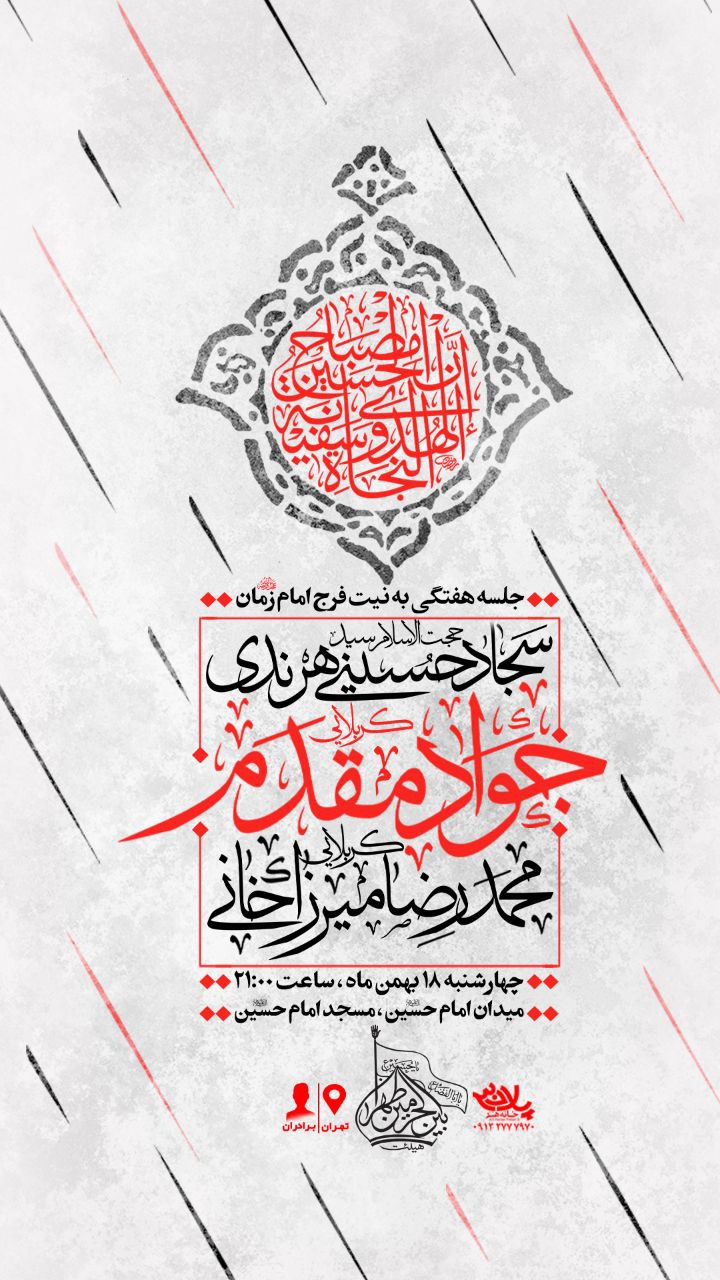 إنّ الحسین مصباح الهدی و سفینة النجاة
جلسه هفتگی به نیت فرج امام زمان
حجت الاسلام سید
سجاد حسینی هرندی
کربلایی
جواد مقدم
کربلایی
محمدرضا میرزاخانی
چهارشنبه ۱۸ بهمن ماه ، ساعت ۲۱:۰۰
میدان امام حسین ، مسجد امام حسین
بین الحرمین طهران
هیئت
تهران | برادران
خانه هنر
۰۹۱۲ ۲۷۷ ۷۹۷۰